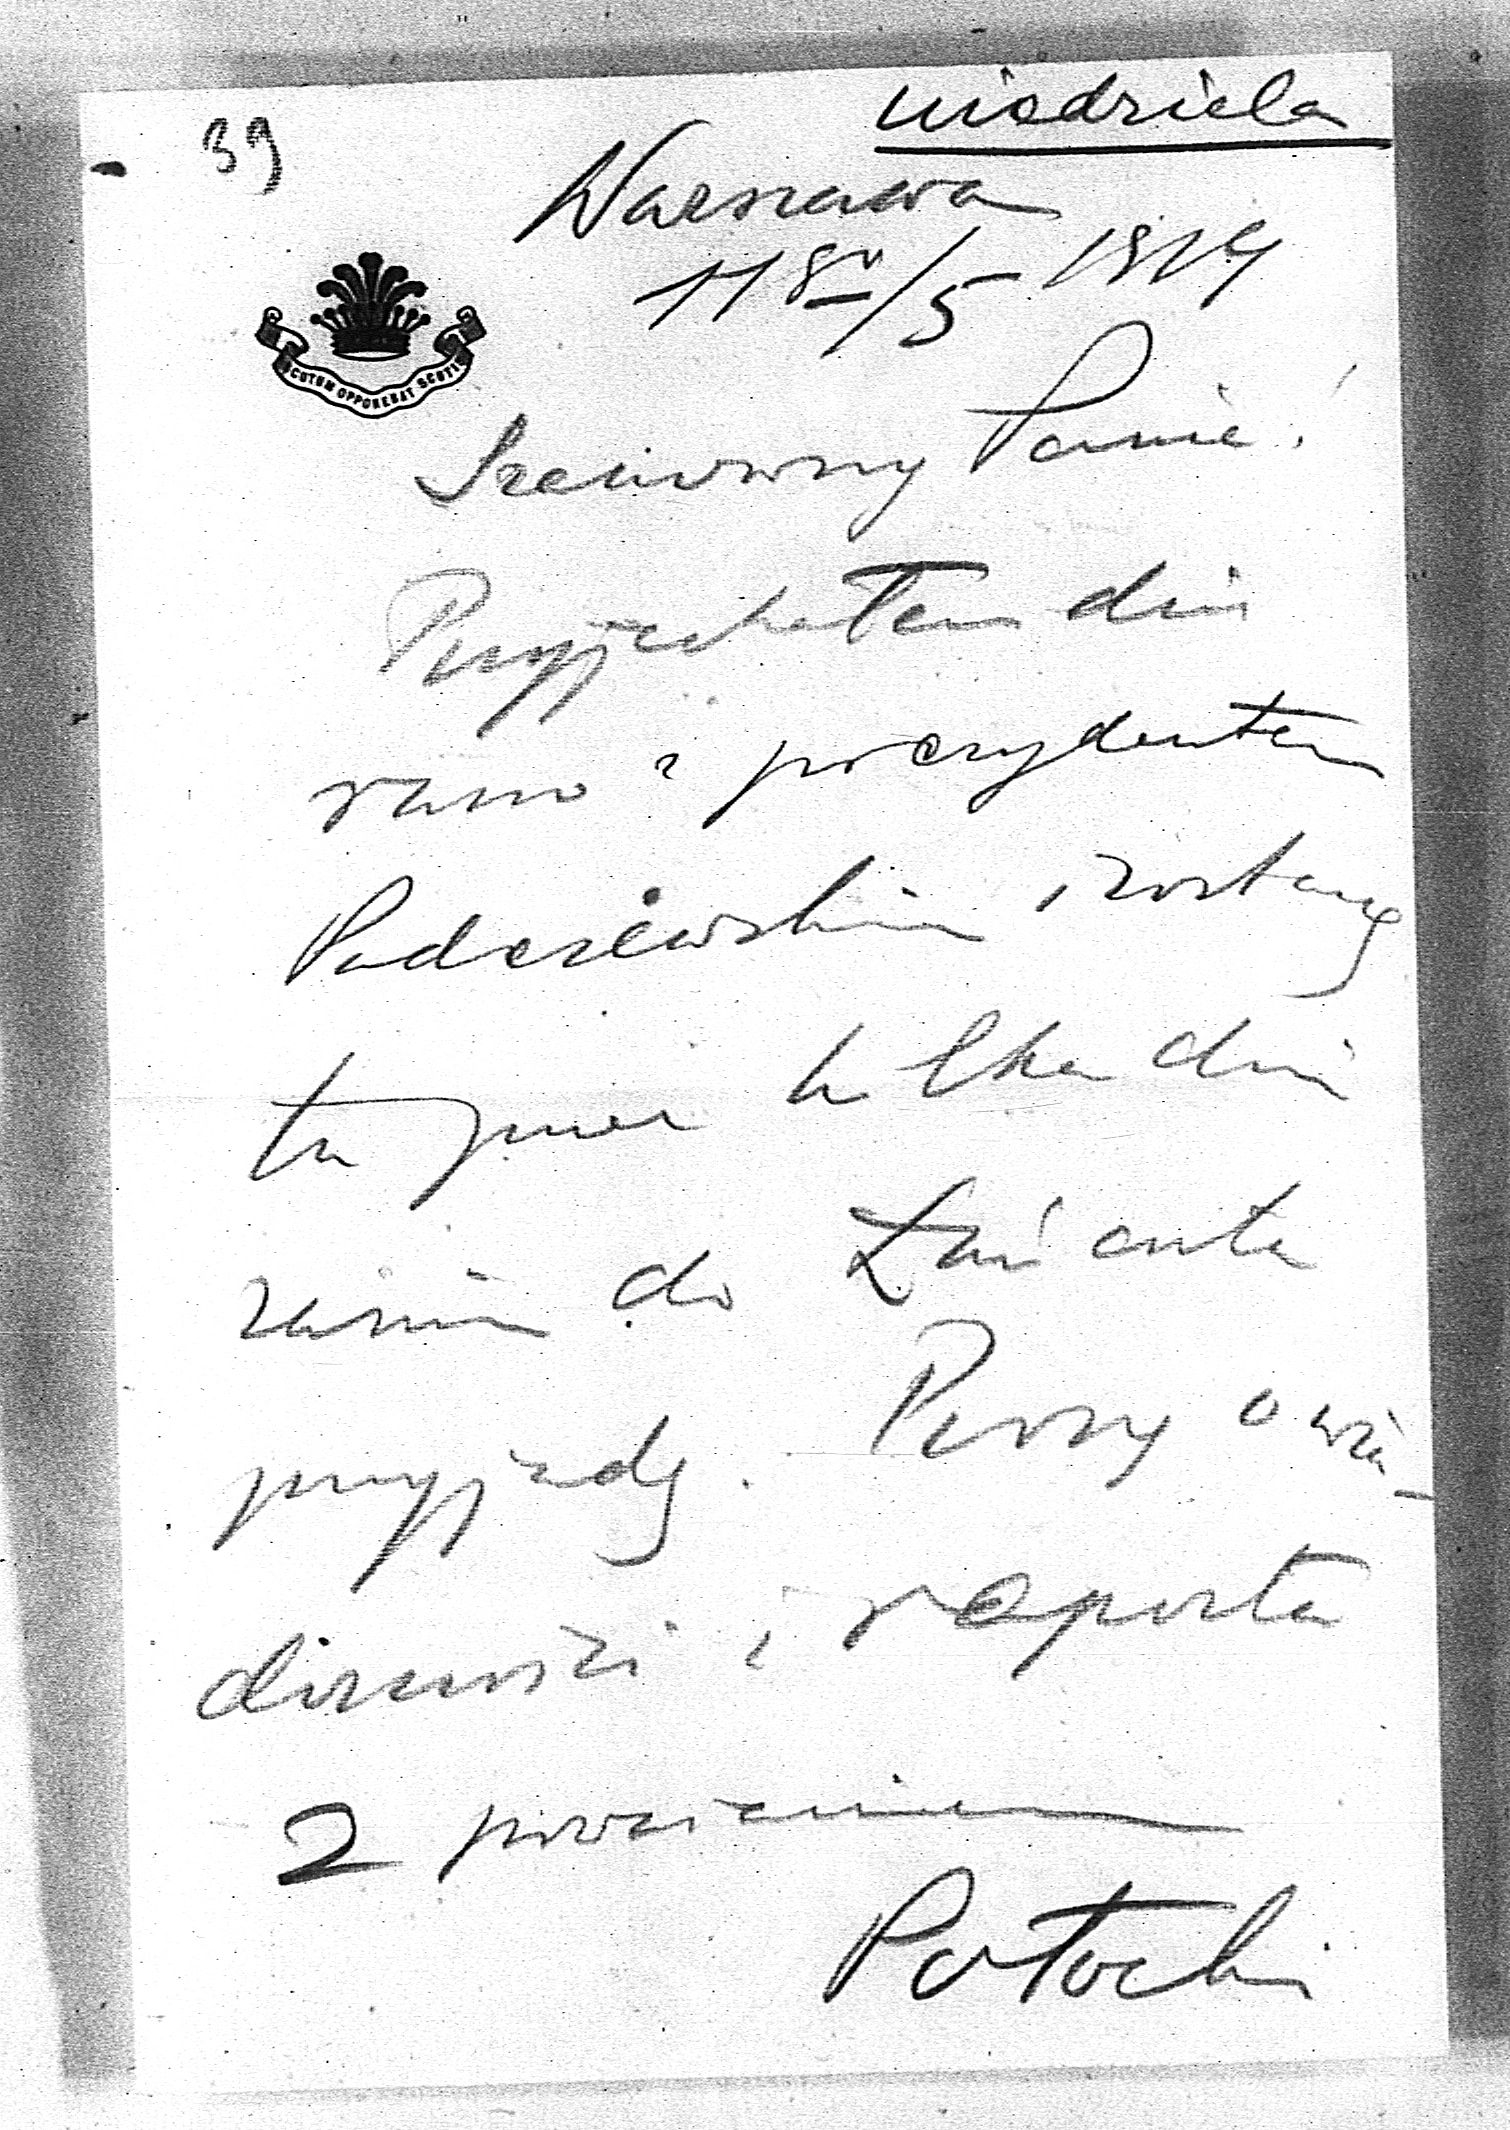 niedziela
39
Warszawa
11 go/5 1919
SCUTUM OPPONEBAT SCUTIS
Szanowny Panie!
Przyjechałem dziś
rano z prezydentem
Paderewskim i zostanę
tu przez kilka dni
zanim do Łańcuta
przyjadę. Proszę o wia-
domości i raporta
Z poważaniem
Potocki